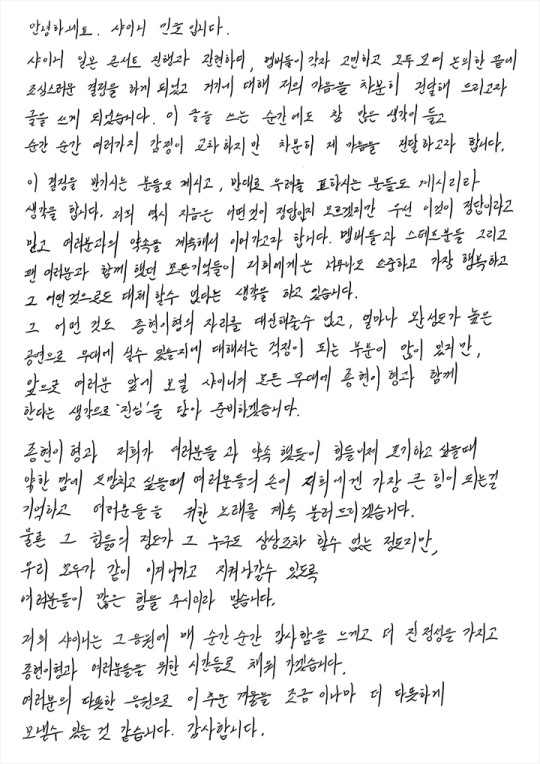 안녕하세요. 샤이니 민호입니다.
샤이니 일본 콘서트 진행과 관련하여, 멤버들이 각자 고민하고 모두 모여 논의한 끝에
조심스러운 결정을 하게 되었고 거기에 대해 저의 마음을 차분히 전달해 드리고자
글을 쓰게 되었습니다. 이 글을 쓰는 순간에도 참 많은 생각이 들고
순간 순간 여러가지 감정이 교차하지만 차분히 제 마음을 전달하고자 합니다.
이 결정을 반기시는 분들도 계시고, 반대로 우려를 표하시는 분들도 계시리라
생각을 합니다. 저희 역시 지금은 어떤것이 정답인지 모르겠지만 우선 이것이 정답이라고
믿고 여러분과의 약속을 계속해서 이어가고자 합니다. 멤버들과 스태프분들 그리고
팬 여러분과 함께 했던 모든기억들이 저희에게는 너무나도 소중하고 가장 행복하고
그 어떤것으로도 대체 할수 없다는 생각을 하고 있습니다.
그 어떤 것도 종현이형의 자리를 대신해줄수 없고, 얼마나 완성도가 높은
공연으로 무대에 설수 있을지에 대해서는 걱정이 되는 부분이 많이 있지만,
앞으로 여러분 앞에 보일 샤이니의 모든 무대에 종현이형과 함께
한다는 생각으로 '진심'을 담아 준비하겠습니다.
종현이형과 저희가 여러분들과 약속 했듯이 힘들어져 포기하고 싶을때
약한 맘에 도망치고 싶을때 여러분들의 손이 저희에겐 가장 큰 힘이 되는걸
기억하고 여러분들을 위한 노래를 계속 불러드리겠습니다.
물론 그 힘듦의 정도가 그 누구도 상상조차 할수 없는 정도지만,
우리 모두가 같이 이겨나가고 지켜나갈수 있도록
여러분들이 많은 힘을 주시리라 믿습니다.
저희 샤이니는 그 응원에 매 순간순간 감사함을 느끼고 더 진정성을 가지고
종현이형과 여러분들을 위한 시간들로 채워 가겠습니다.
여러분의 따뜻한 응원으로 이 추운 겨울을 조금 이나마 더 따뜻하게
보낼수 있을 것 같습니다. 감사합니다.